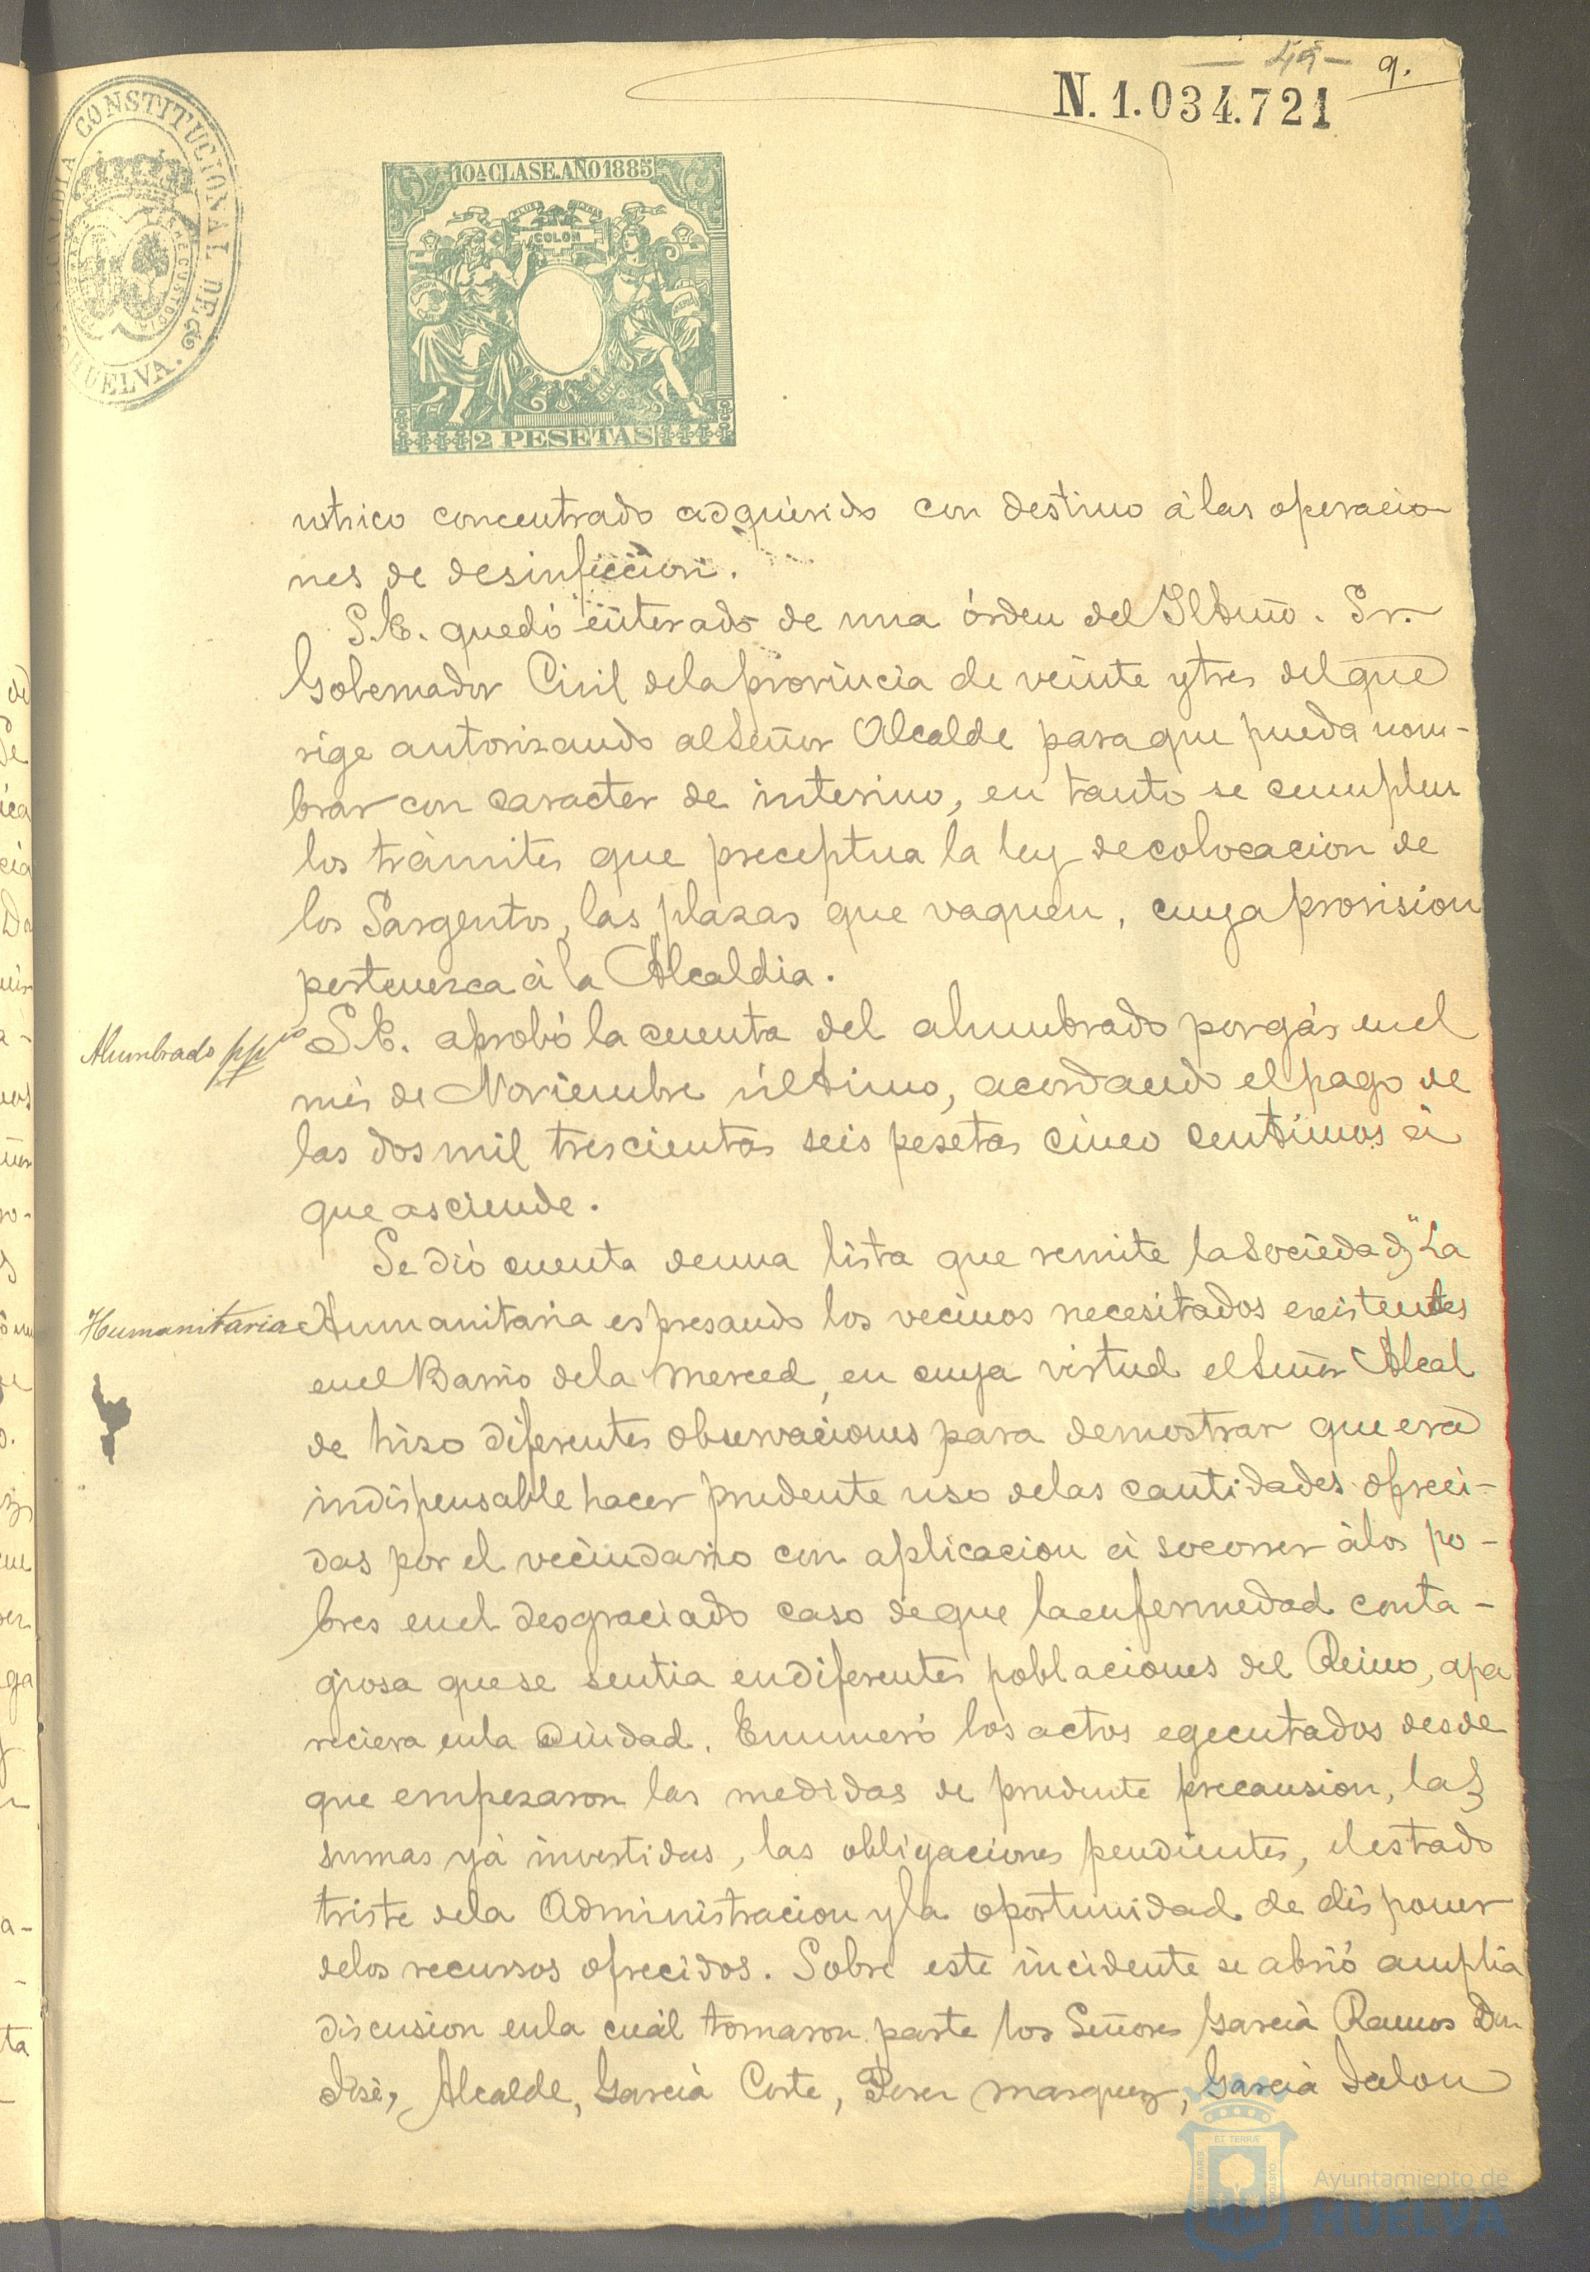 49
9.
N. 1.034.721
ALCALDIA CONSTITUCIONAL DE HUELVA.
10ª CLASE. AÑO 1885
COLON
2 PESETAS
nitrico concentrado adquirido con destino á las operacio
nes de desinfeccion.
S.E. quedó enterado de una órden del Iltmo. Sr.
Gobernador Civil de la provincia de veinte y tres del que
rige autorizando al Señor Alcalde para que pueda nom-
brar con caracter de interino, en tanto se cumplen
los trámites que preceptua la ley de colocacion de
los Sargentos, las plazas que vaquen, cuya provision
pertenezca á la Alcaldia.
Alumbrado ppco
S.E. aprobó la cuenta del alumbrado por gás en el
més de Noviembre último, acordando el pago de
las dos mil trescientas seis pesetas cinco centimos á
que asciende.
Se dió cuenta de una lista que remite la Sociedad "La
Humanitaria
Humanitaria espresando los vecinos necesitados existentes
en el Barrio de la Merced, en cuya virtud el Señor Alcal
de hizo diferentes observaciones para demostrar que era
indispensable hacer prudente uso de las cantidades ofreci-
das por el vecindario con aplicacion á socorrer á los po-
bres en el desgraciado caso de que la enfermedad conta-
giosa que se sentia en diferentes poblaciones del Reino, apa
reciera en la Ciudad. Enumeró los actos egecutados desde
que empezaron las medidas de prudente precausion, las
sumas yá invertidas, las obligaciones pendientes, el estado
triste de la Administracion y la oportunidad de disponer
de los recursos ofrecidos. Sobre este incidente se abrió amplia
discusion en la cuál tomaron parte los Señores Garcia Ramos Don
José, Alcalde, Garcia Corte, Perez Marquez, Garcia Jalon
Ayuntamiento de
HUELVA